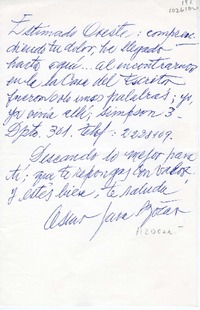 Estimado Oreste: compren-
diendo tu dolor, he llegado
hasta aquí... al encontrarnos
en la Casa del Escritor
fueron sólo unas palabras; yo,
ya vivía allá; Simpson 3
Dpto. 301. telef: 2228409.
Deseando lo mejor para
ti; que te repongas con valor
y estés bien, te saluda
Oscar Jara Azócar
AZOCAR